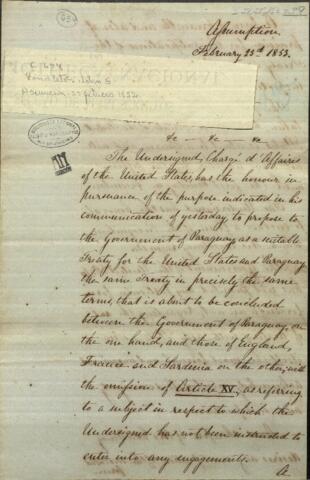 Assumption
February 23d 1853.
&c — &c — &c
The Undersigned, Chargé d'Affaires
of the United States, has the honour in
pursuance of the purpose indicated in his
communication of yesterday, to propose to
the Government of Paraguay, as a suitable
Treaty for the United States and Paraguay
the same Treaty in precisely the same
terms, that is about to be concluded
between the Government of Paraguay, on
the one hand, and those of England,
France and Sardinia on the other, with
the omission of Article XV, as referring
to a subject in respect to which the
Undersigned has not been instructed to
enter into any engagements.
A